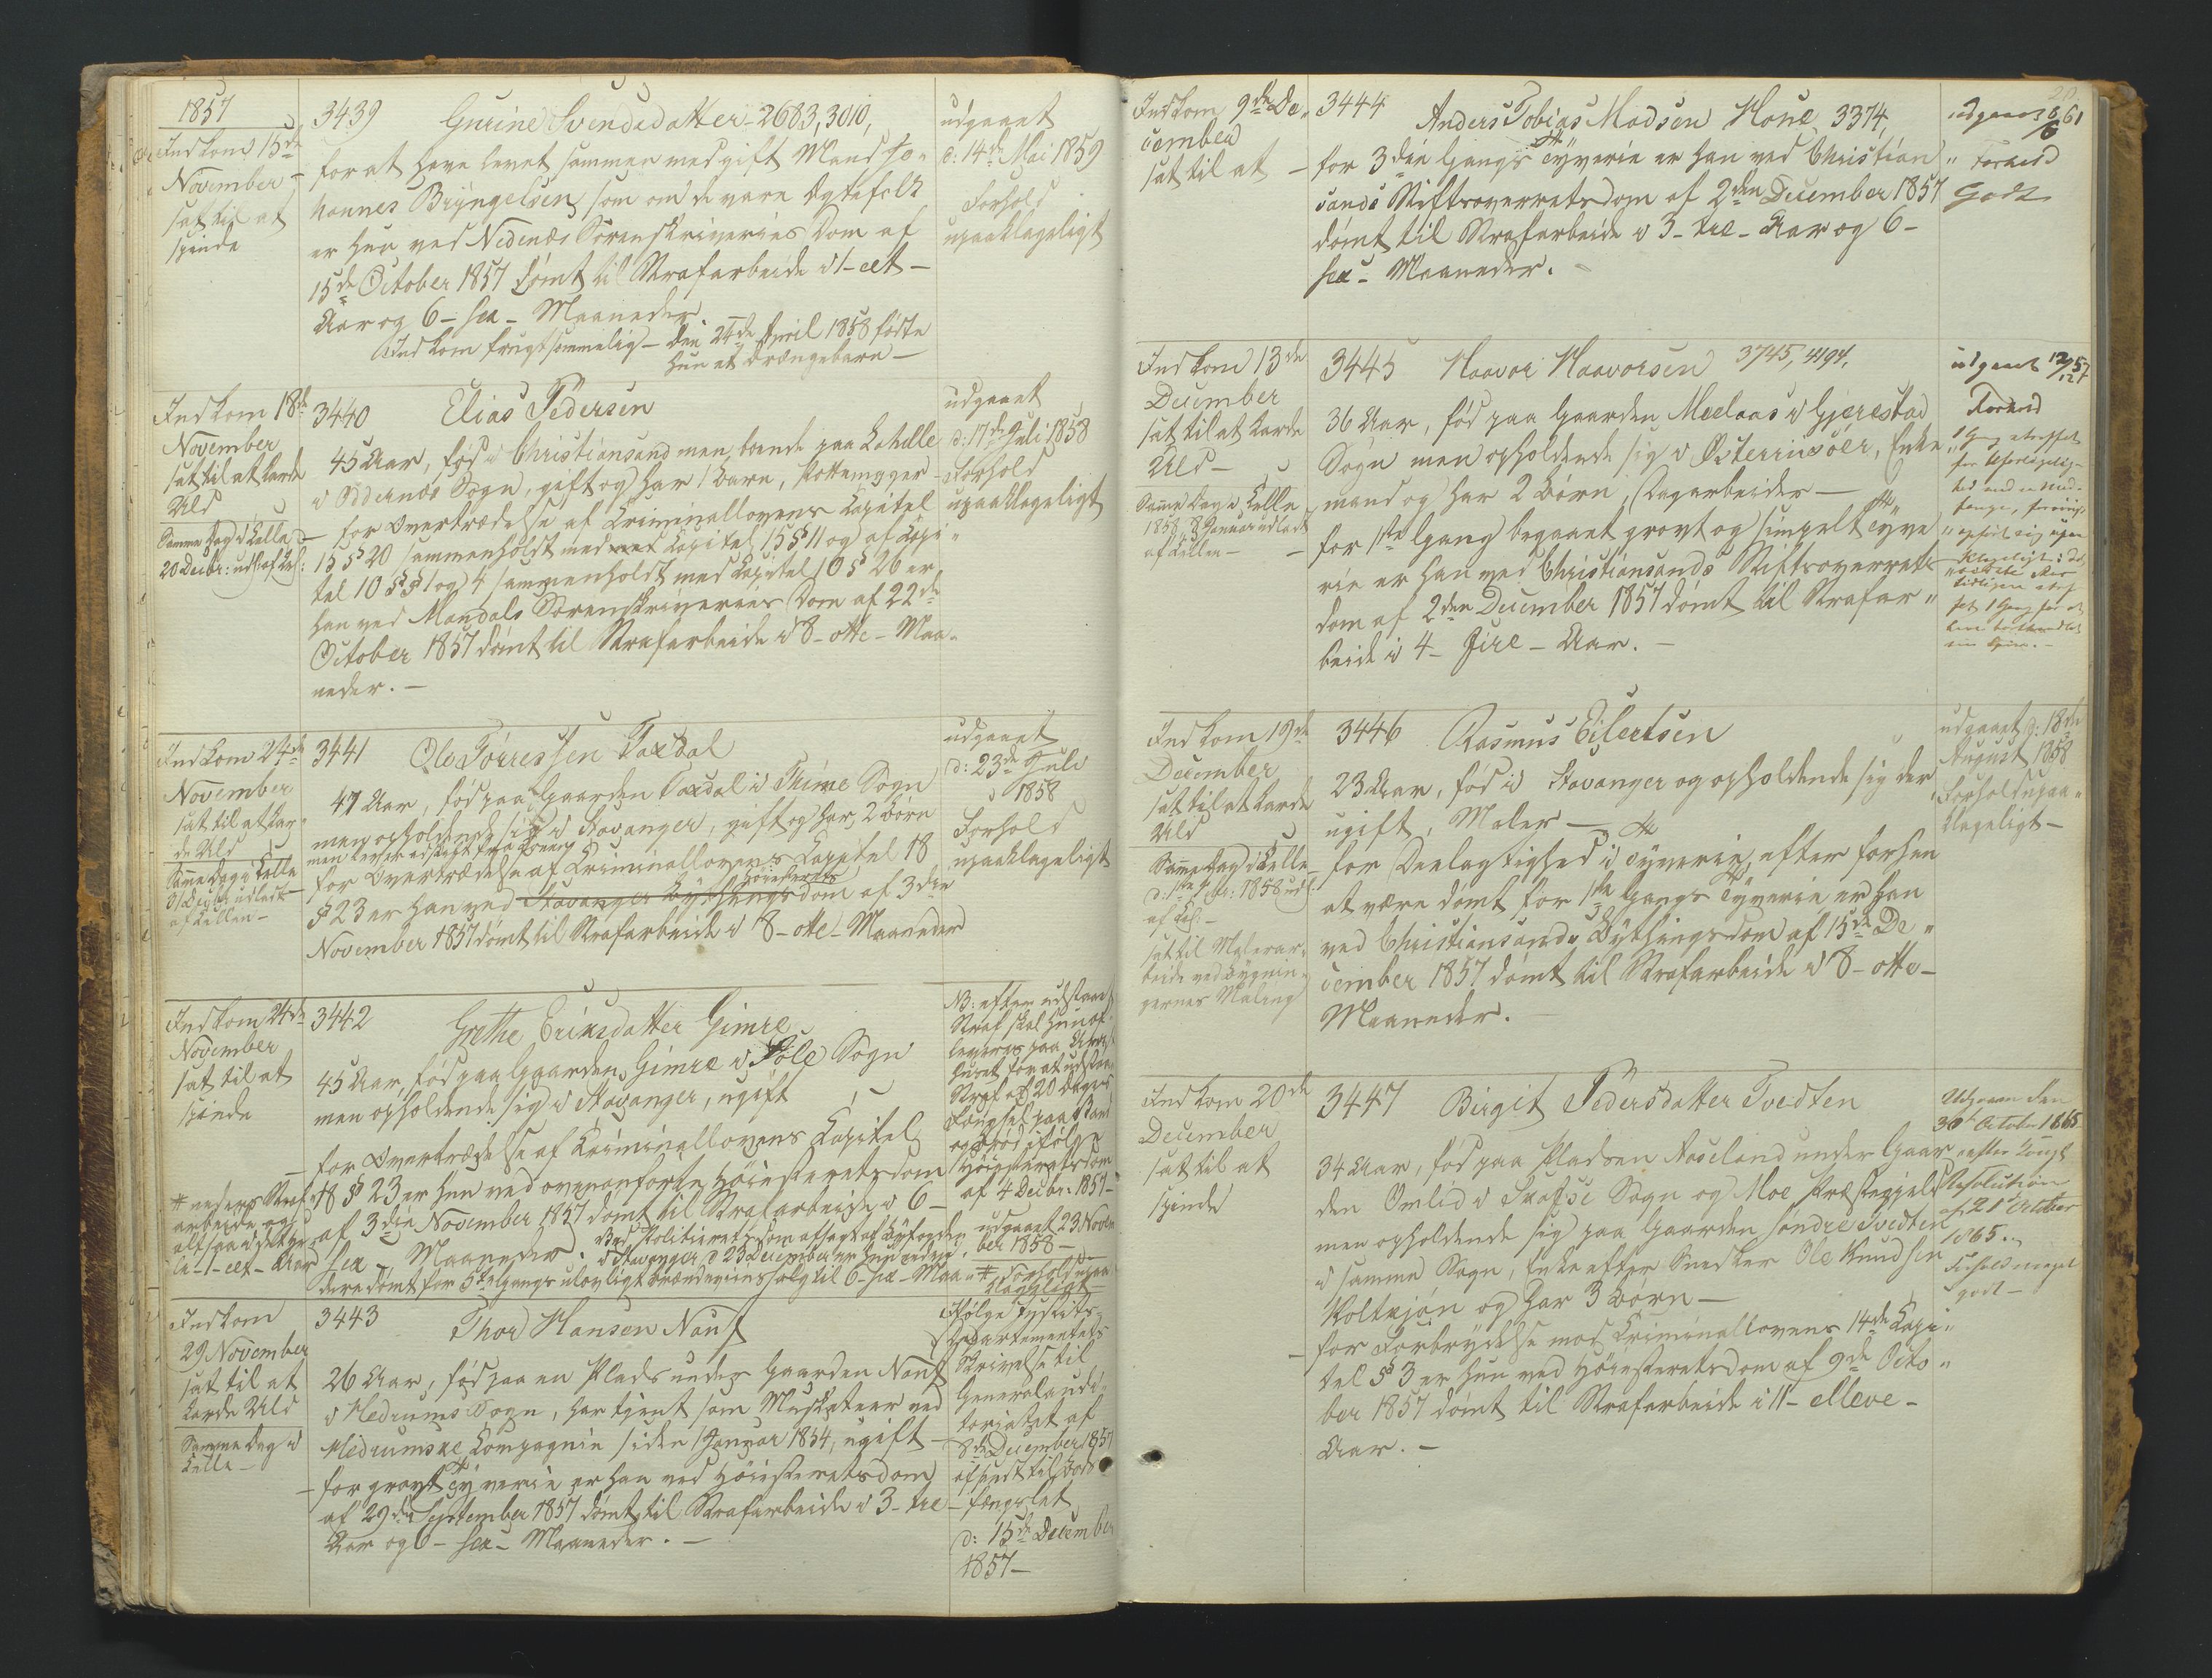 1857
Indkom 15de
November
sat til at
spinde
3439 Gurine Svendsdatter 2683, 3010,
for at have levet sammen med gift Mand Jo-
hannes Bryngelsen som om de vare Ægtefolk
er hun ved Nedenæs Sorenskriveries Dom af
15de October 1857 dömt til Strafarbeide i 1 - eet -
Aar og 6 - sex - Maaneder.
Indkom frugtsommelig - den 24de April 1858 födte
hun et Drængebarn -
udgaaet
d: 14de Mai 1859
Forhold
upaaklageligt
Indkom 18de
November
sat til at karde
Uld
Samme Dag i Celle
20 Decbr: uds: af Cel:
3440 Elias Pedersen
45 Aar, föd i Christiansand men boende paa Lahelle
i Oddernæs Sogn, gift og har 1 Barn, Pottemager
- for Overtrædelse af Criminallovens Capitel
15 § 20 sammenholdt med Capitel 15 § 11 og af Capi-
tel 10 §§ 1 og 4 sammenholdt med Capitel 10 § 26 er
han ved Mandals Sorenskriveries Dom af 22de
October 1857 dömt til Strafarbeide i 8 - otte - Maa-
neder. -
udgaaet
d: 17de Juli 1858
Forhold
upaaklageligt
Indkom 24de
November
sat til at kar-
de Uld
Samme Dag i Celle
31 Decbr udladt
af Cellen -
3441 Ole Torressen Taxdal
47 Aar, föd paa Gaarden Taxdal i Thime Sogn
men opholdende sig i Stavanger, gift og har 2 Börn
men lever adskilt fra Konen
for Overtrædelse af Criminallovens Capitel 18
§ 23 er han ved Stavanger Bythings Höiesterets dom af 3die
November 1857 dömt til Strafarbeide i 8 - otte - Maaneder
udgaaet
d: 23de Juli
1858
Forhold
upaaklageligt
Indkom 24de
November
sat til at
spinde
3442 Grethe Eriksdatter Gimre
45 Aar, föd paa Gaarden Gimre i Sole Sogn
men opholdende sig i Stavanger, ugift
- for Overtrædelse af Criminallovens Capitel
18 § 23 er hun ved ovenanförte Höiesteretsdom
af 3die November 1857 dömt til Strafarbeide i 6 -
sex - Maaneder. Ved Politieretsdom afsagt af Byfogden
i Stavanger d 23 December er hun endvi-
dere dömt for 5te Gangs ulovligt Brændeviinssalg til 6 - sex - Maa-
neders Straf-
arbeide og
altsaa i det he-
le 1 - eet - Aar
NB: efter udstaaet
Straf skal hun af-
leveres paa
huset for at udstaae
Straf af 20 Dages
Fængsel paa Vand
og Bröd ifölge
Höiesteretsdom
af 4 Decbr. 1857 -
udgaaet 23 Novem
ber 1858 -
Forhold upaa
klageligt
Indkom
29 November
sat til at
karde Uld
Samme Dag i
Celle -
3443 Thor Hansen Nanf
26 Aar, föd paa en Plads under Gaarden Nanf
i Hedrums Sogn, har tjent som Musketeer ved
Hedrumske Compagnie siden 1 Januar 1854, ugift -
- for grovt Tyverie er han ved Höiesteretsdom
af 29de September 1857 dömt til Strafarbeide i 3 - tre
Aar og 6 - sex - Maaneder. -
Ifölge Justits-
Departementets
Skrivelse til
Generalaudi-
toriatet af
8de December 1857
afsendt til Bods
fængslet
d: 15de December
1857 -
Indkom 9de De-
cember
sat til at -
3444 Anders Tobias Madsen Hone 3374,
for 3die Gangs Tyverie er han ved Christian
sands Stiftsoverretsdom af 2den December 1857
dömt til Strafarbeide i 3 - tre - Aar og 6 -
sex - Maaneder.
udgaaet 8/6 61
Forhold
Godt
Indkom 13de
December
sat til at karde
Uld -
Samme Dag i Celle
1858, 8 Januar udladt
af Cellen -
3445 Haavor Haavorsen 3745, 4194,
36 Aar, föd paa Gaarden Meelaas i Gjerestad
Sogn men opholdende sig i Österriisöer, Enke-
mand og har 2 Börn, Dagarbeider -
for 1ste Gang begaaet grovt og simpelt Tyve
rie er han ved Christiansands Stiftsoverrets
dom af 2den December 1857 dömt til Strafar-
beide i 4 - fire - Aar. -
udgaaet
Forhold
1 Gang straffet
Indkom 19de
December
sat til at karde
Uld
Samme Dag i Celle
af Cel: -
sat til Malerar-
beide ved Bygnin-
gernes Maling
3446 Rasmus Eilertsen
23 Aar, föd i Stavanger og opholdende sig der
ugift, Maler -
for Deelagtighed i Tyverie efter forhen
at være dömt for 1ste Gangs Tyverie er han
ved Christiansands Bythingsdom af 15de De-
cember 1857 dömt til Strafarbeide i 8 - otte -
Maaneder.
udgaaet d: 18de
August 1858
Forhold upaa-
klageligt -
Indkom 20de
December
sat til at
spinde
3447 Birgit Pedersdatter Tvedten
34 Aar, föd paa Pladsen Roseland under Gaar
den Omlid i Skafse Sogn og Moe Præstegjeld
men opholdende sig paa Gaarden söndre Tvedten
i samme Sogn, Enke efter Snedker Ole Knudsen
Holtejön og har 3 Börn -
for Forbrydelse mod Criminallovens 14de Capi-
tel § 3 er hun ved Höiesteretsdom af 9de Octo-
ber 1857 dömt til Strafarbeide i 11 - elleve -
Aar. -
Udgaaen den
30te October 1865
efter Kongl
Resolution
af 21de October
1865.
Forhold meget
godt -